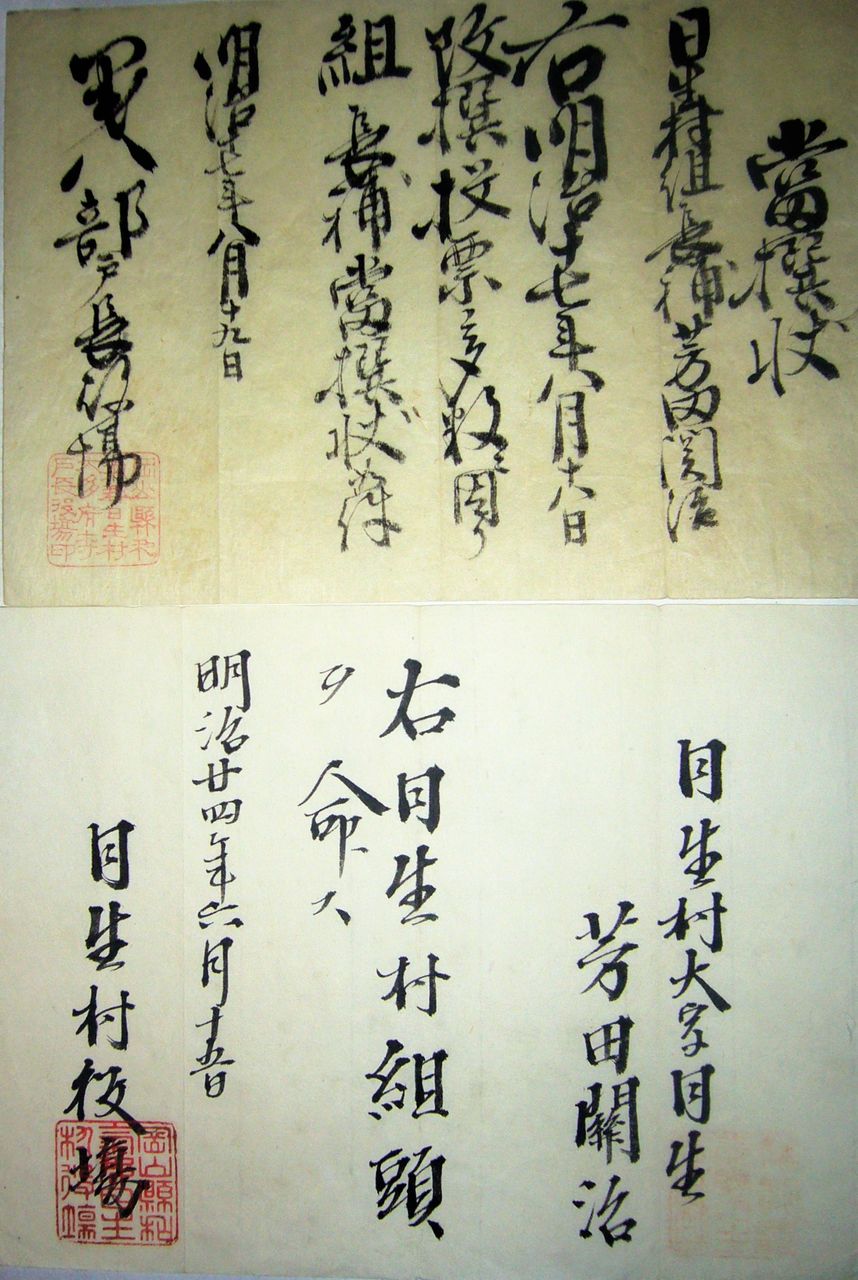 當撰状
日生村組長補芳田関治
右明治十七年八月十八日
改撰投票多数ニ因リ
組長補當撰状
明治十七年八月十九日
部戸長役場
日生村大字日生
芳田關治
右日生村組頭
ヲ命ス
明治廿四年六月十五日
日生村役場